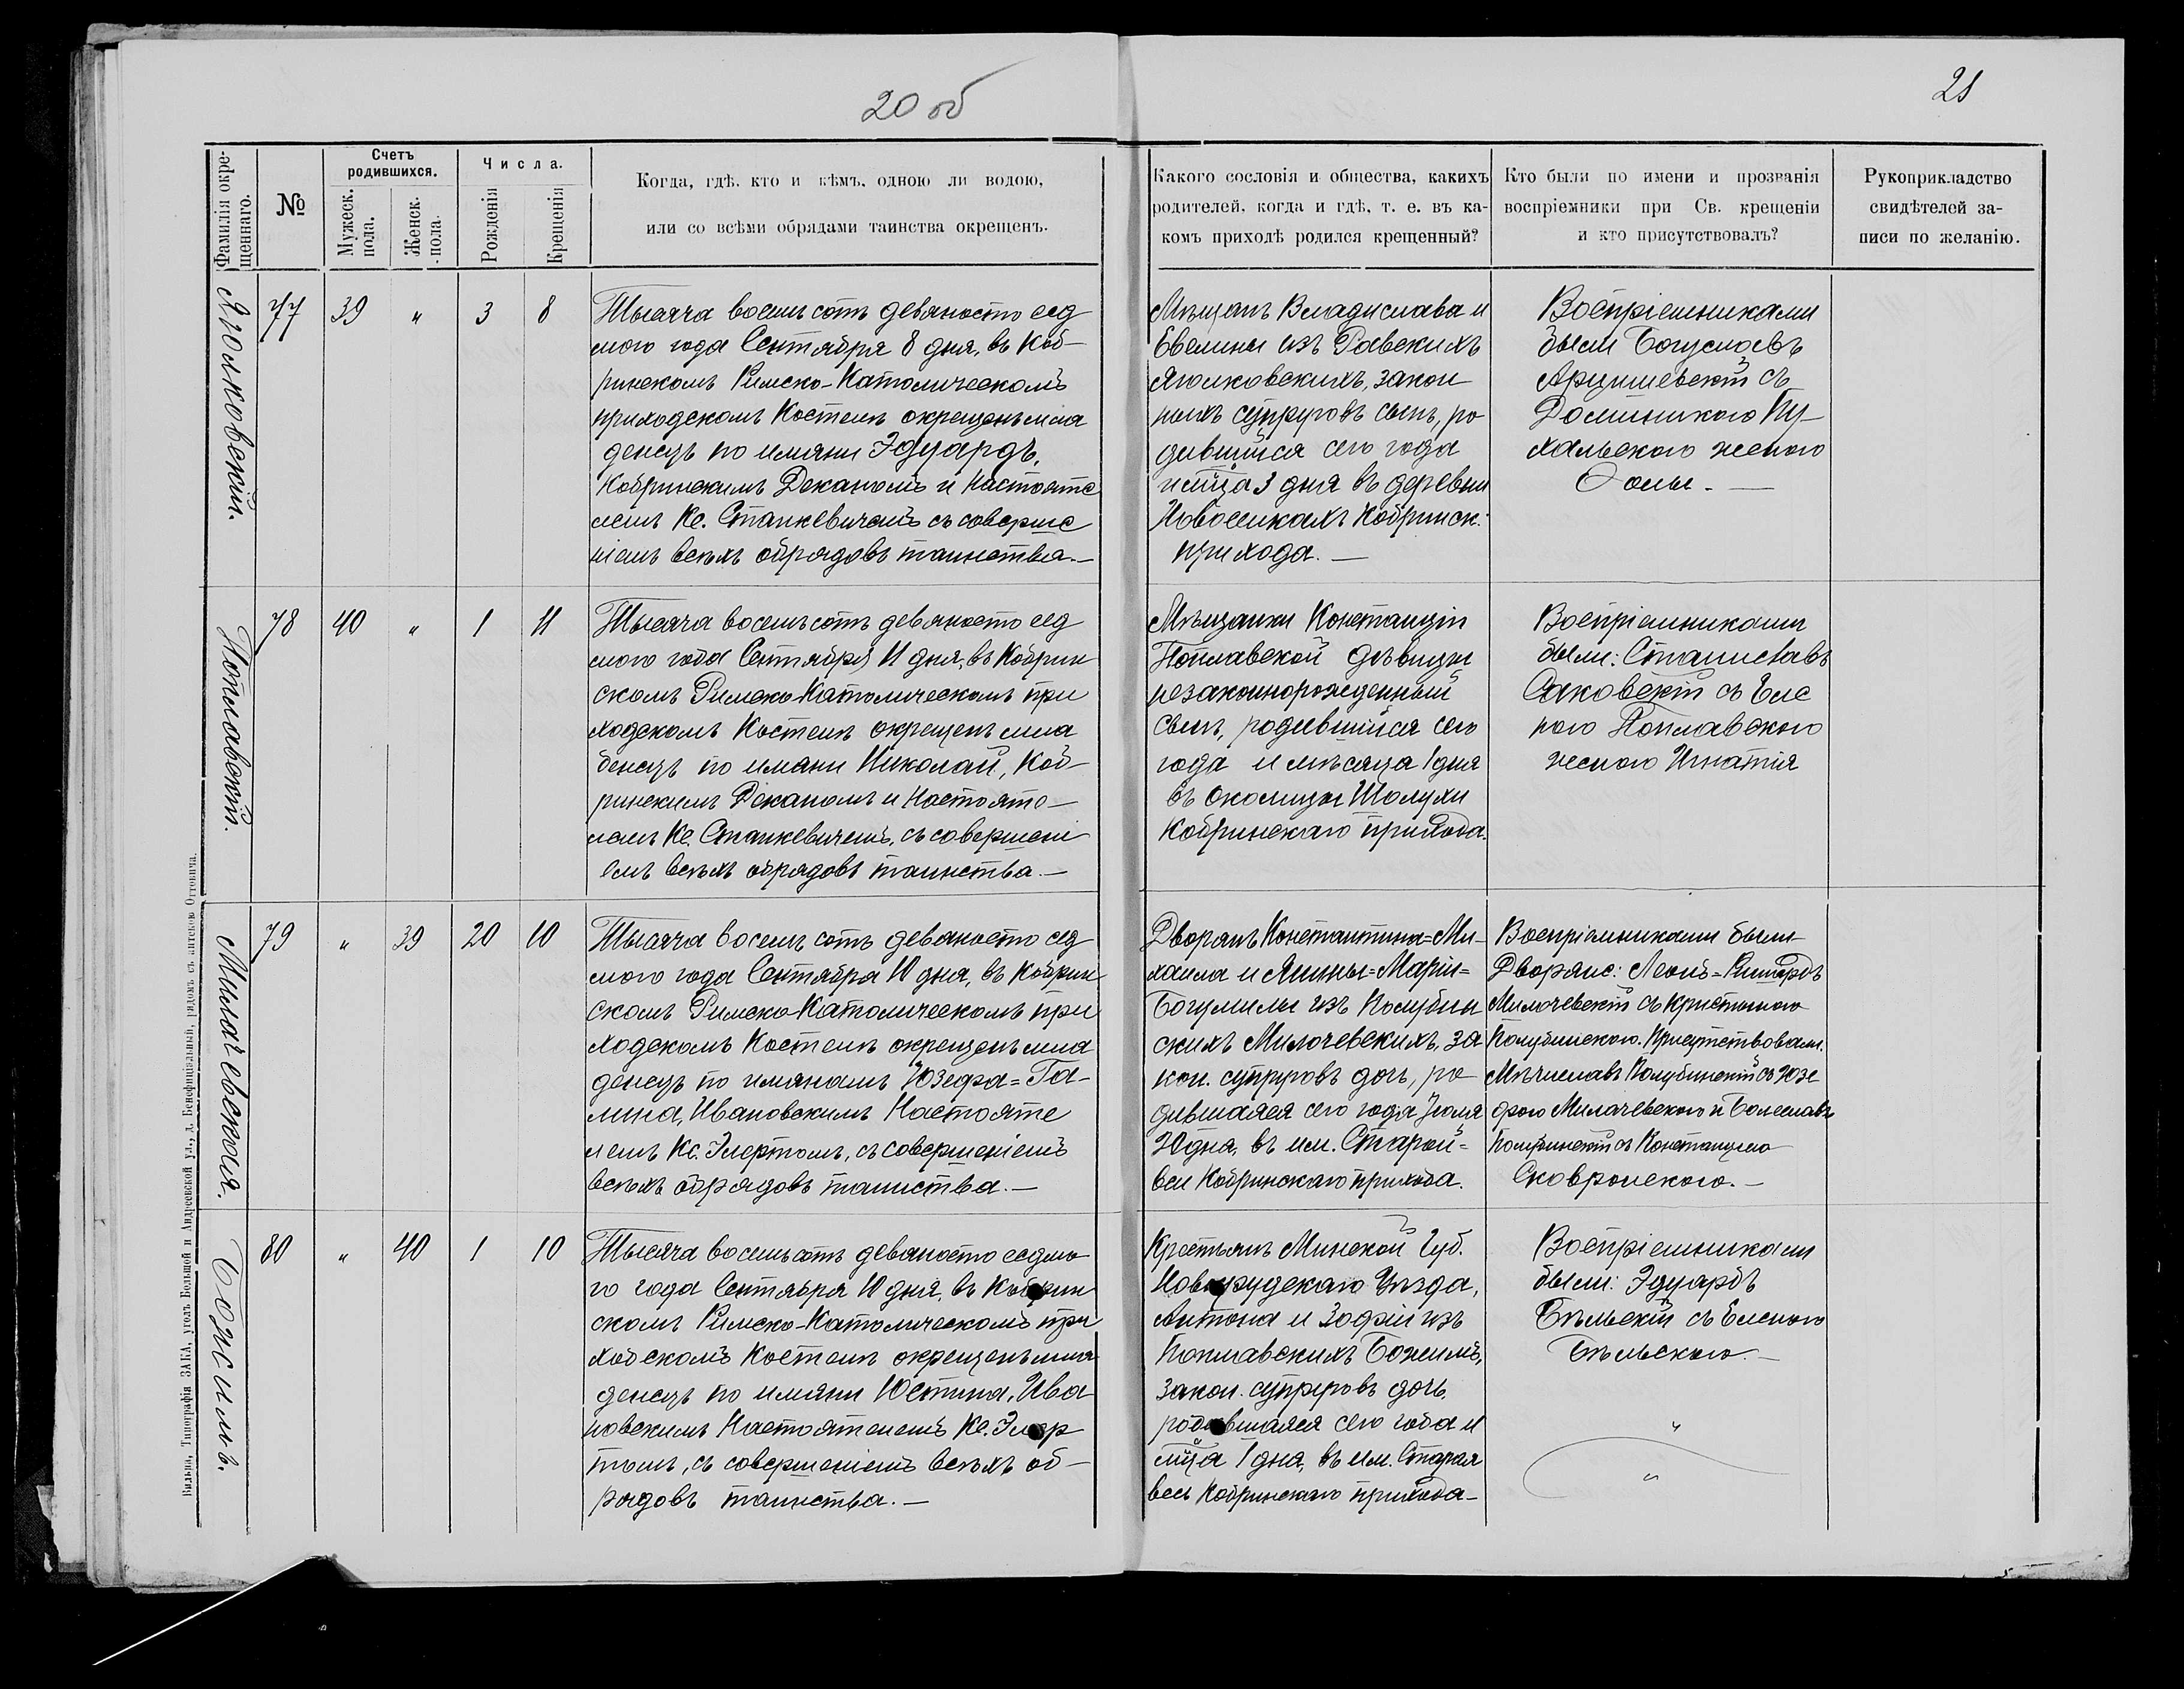 20 об
21
Фамилія окрещеннаго.
№
Счетъ родившихся.
Мужеск. пола.
Женск. пола.
Числа.
Рожденія
Крещенія
Когда, гдѣ, кто и кѣмъ, одною ли водою,
или со всѣми обрядами таинства окрещенъ.
Какого сословія и общества, какихъ
родителей, когда и гдѣ, т. е. въ ка-
комъ приходѣ родился крещенный?
Кто были по имени и прозванія
воспріемники при Св. крещеніи
и кто присутствовалъ?
Рукоприкладство
свидѣтелей за-
писи по желанію.
77 39 " 3 8
Тысяча восемь сотъ девяносто сед
мого года Сентября 8 дня, въ Коб-
ринскомъ Римско-Католическомъ
приходскомъ Костелѣ окрещенъ мла
денецъ по имяни Эдуардъ,
Кобринскимъ Деканомъ и Настояте
лемъ Кс. Станкевичемъ съ соверше
ніемъ всѣхъ обрядовъ таинства.—
Мѣщанъ Владислава и
Евелины изъ Равскихъ
закон
ныхъ супруговъ сынъ, ро
дившийся сего года
и м-ца 3 дня въ деревни
Новоселкахъ Кобринск.
прихода.—
Воспріемниками
были Богуславъ
Арцишевскій съ
Доминикою Пу-
хальскою женою
Фомы.—
Поплавскій.
78 40 " 1 11
Тысяча восемь сотъ девяносто сед
мого года Сентября 11 дня, въ Кобрин
скомъ Римско-Католическомъ при
ходскомъ Костелѣ окрещенъ мла
денецъ по имяни Николай, Коб-
ринскимъ Деканомъ и Настояте-
лемъ Кс. Станкевичемъ, съ совершені
емъ всѣхъ обрядовъ таинства.—
Мѣщанки Констанціи
Поплавской дѣвицы
незаконнорожденный
сынъ, родившийся сего
года и мѣсяца 1 дня
въ околицы Шолухи
Кобринскаго прихода.
Воспріемниками
были: Станиславъ
Саковскій съ Еле
ною Поплавскою
женою Игнатія
Милачевская.
79 " 39 20 10
Тысяча восемь сотъ девяносто сед
мого года Сентября 10 дня, въ Кобрин
скомъ Римско-Католическомъ при
ходскомъ Костелѣ окрещенъ мла
денецъ по имянамъ Юзефа=Га-
лина, Ивановскимъ Настояте
лемъ Кс. Элертомъ, съ совершеніемъ
всѣхъ обрядовъ таинства.—
Дворянъ Константина=Ми-
хаила и Янины=Маріи=
Богумилы изъ Колубин
скихъ Милачевскихъ, за
кон. супруговъ дочь, ро
дившаяся сего года Іюля
20 дня, въ им. Старой=
вси Кобринскаго прихода.
Воспріемниками были
Дворяне: Леонъ=Ришардъ
Милачевскій съ Кристиною
Колубинскою. Присутствовали:
Мѣчиславъ Колубинскій съ Юзе
фою Милачевскою и Болеславъ
Колубинскій съ Констанціею
Сковронскою.—
Божимъ.
80 " 40 1 10
Тысяча восемь сотъ девяносто седмо
го года Сентября 10 дня, въ Кобрин
скомъ Римско-Католическомъ при
ходскомъ Костелѣ окрещенъ мла
денецъ по имяни Юстина, Ива
новскимъ Настоятелемъ Кс. Элер
томъ, съ совершеніемъ всѣхъ об-
рядовъ таинства.—
Крестьянъ Минской Губ.
Новогрудскаго Уѣзда,
Антона и Зофіи изъ
Поплавскихъ Божимъ,
закон. супруговъ дочь
родившаяся сего года и
м-ца 1 дня, въ им. Старая
весь Кобринскаго прихода—
Воспріемниками
были: Эдуардъ
Бѣльскій съ Еленою
Бѣльскою.—
"
"
Вильно, Типографія ЗАКА, уголъ Большой и Андреевской ул., д. Бенефиціальный, рядомъ съ аптекою Оттовича.